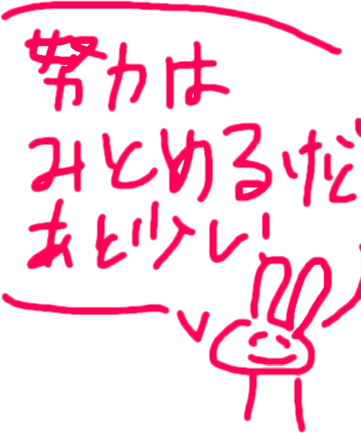 努力は
みとめるけど
あと少し!